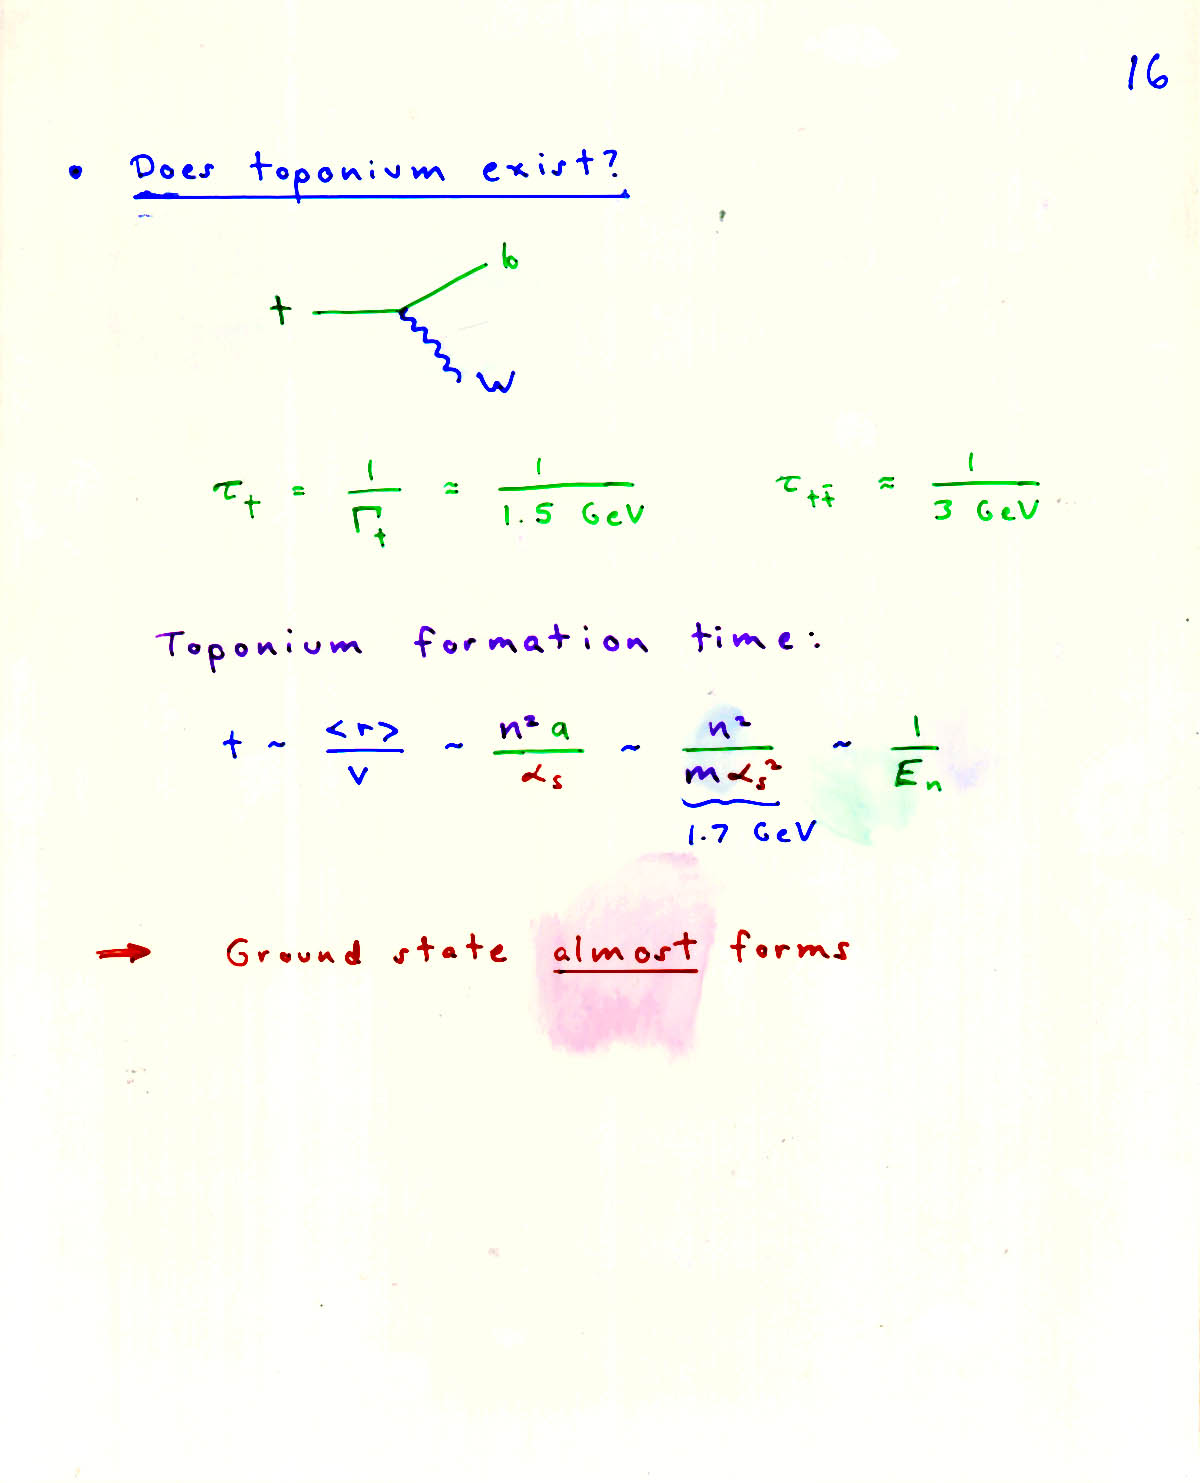 16
• Does toponium exist?
t b
W
τ_t = 1/Γ_t ≈ 1/1.5 GeV τ_tt̄ ≈ 1/3 GeV
Toponium formation time:
t ~ <r>/v ~ n² a/α_s ~ n²/m α_s² ~ 1/E_n
1.7 GeV
→ Ground state almost forms